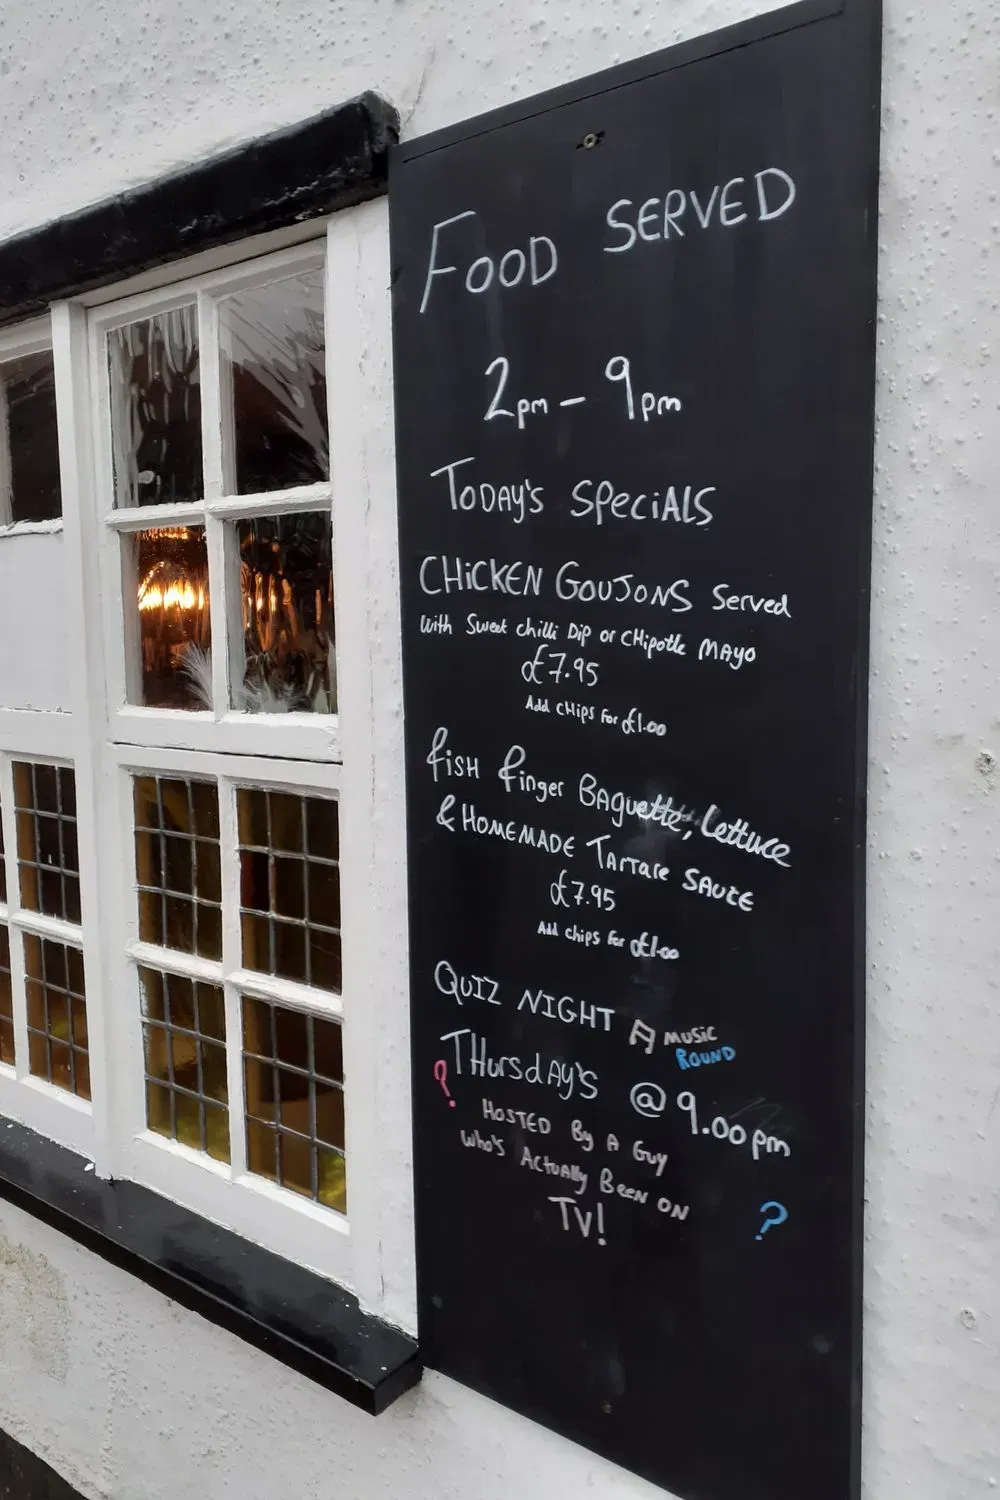 FOOD SERVED
2pm - 9pm
TODAY'S SPECiALS
CHiCKEN GOUJONS Served
With Sweet chilli Dip or CHipotle MAYO
£7.95
Add CHIPS For £1.00
fiSH finger BAguette, Lettuce
& HOMEMADE TArTAre SAUCE
£7.95
Add chips for £1.00
QUIZ NIGHT
MUSIC
ROUND
THursdAY's @ 9.00pm
? HOSTED By A Guy
Who's ActuAlly BEEN ON
TV! ?